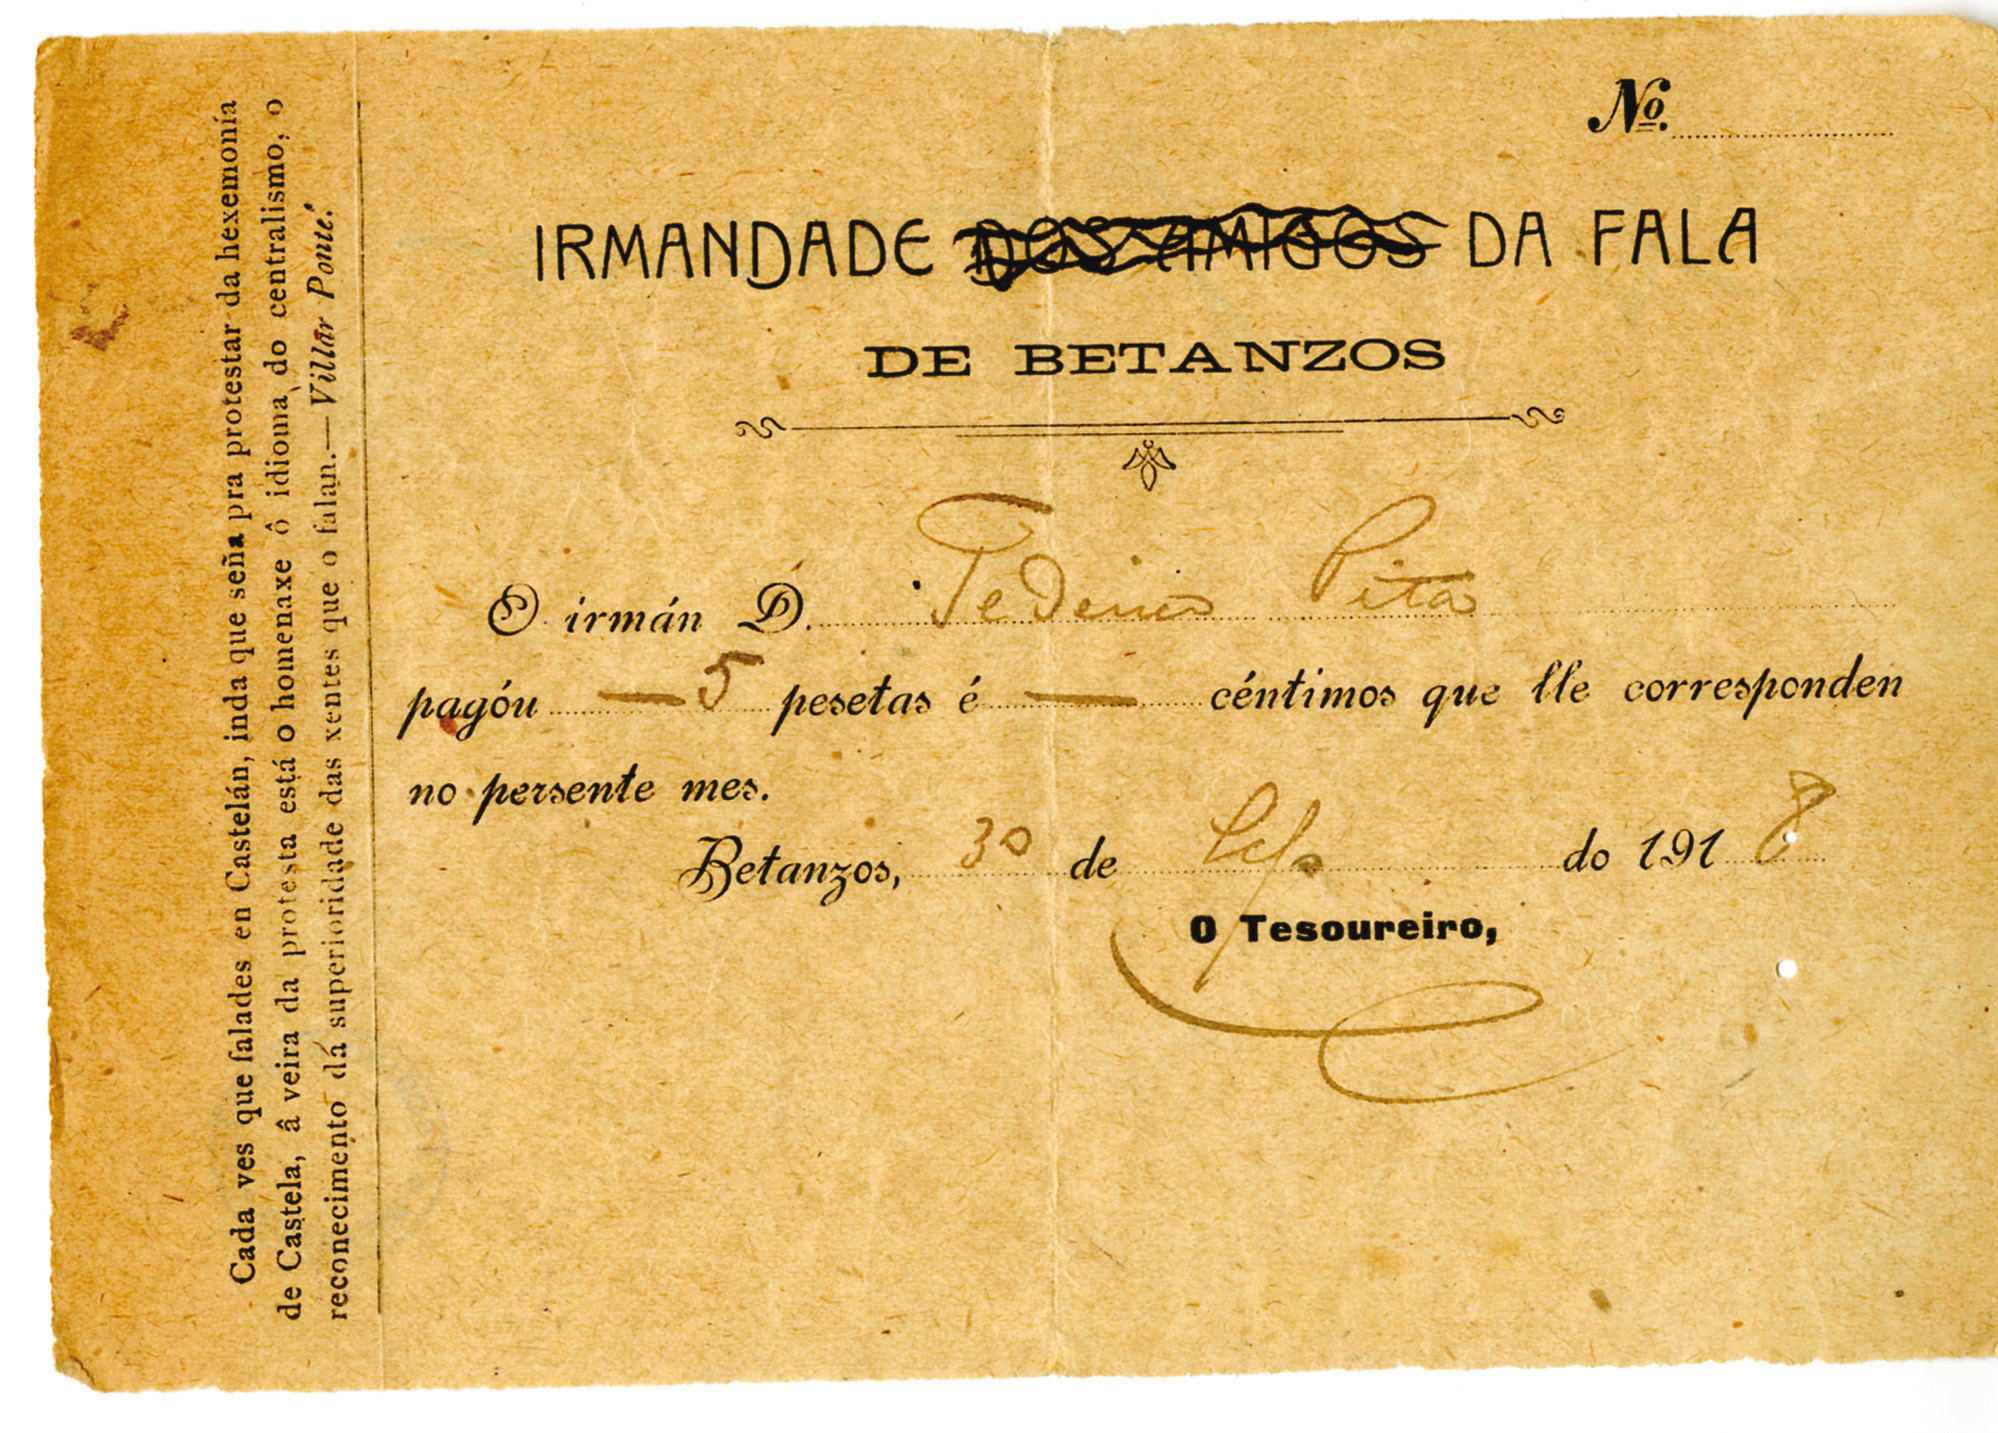 Cada ves que falades en Castelán, inda que seña pra protestar da hexemonía
de Castela, â veira da protesta está o homenaxe ô idioma do centralismo, o
reconecimento dá superioridade das xentes que o falan.—Villar Ponte.
No.
IRMANDADE DOS AMIGOS DA FALA
DE BETANZOS
O irmán D. Federico Pita
pagóu — 5 pesetas é — céntimos que lle corresponden
no persente mes.
Betanzos, 30 de do 1918
O Tesoureiro,